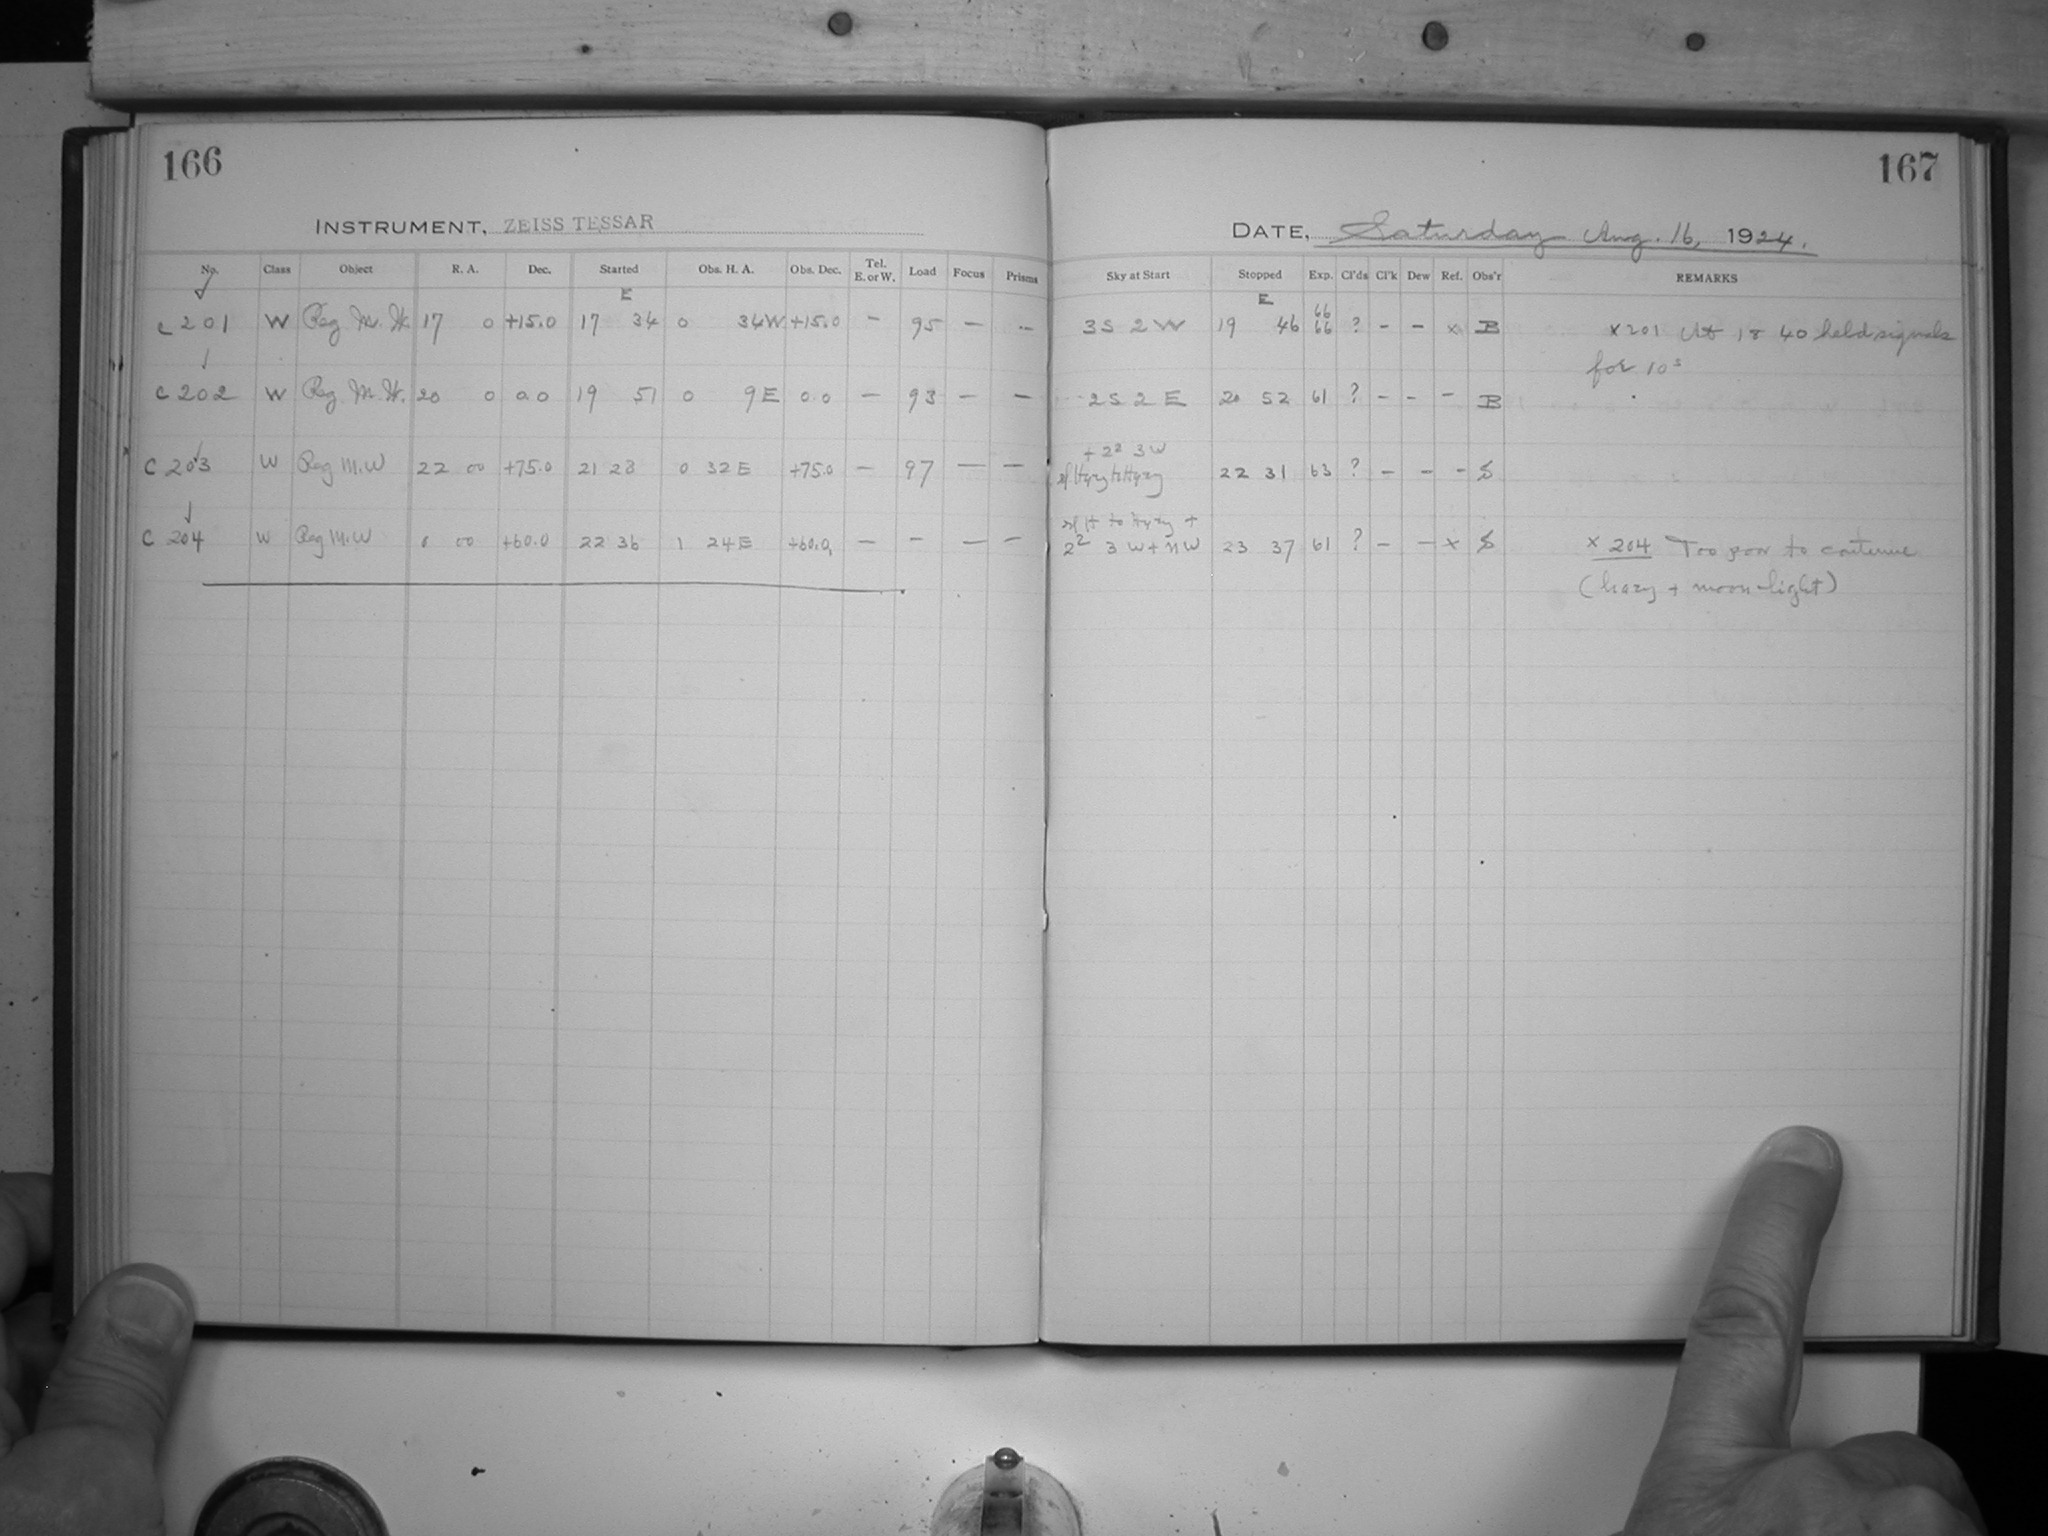 166
INSTRUMENT, ZEISS TESSAR
No. Class Object R. A. Dec. Started Obs. H. A. Obs. Dec. Tel. E. or W. Load Focus Prisms
E
C 201 W Reg M. W. 17 0 +15.0 17 34 0 34W +15.0 - 95 - -
C 202 W Reg M. W. 20 0 0.0 19 51 0 9 E 0.0 - 93 - -
C 203 W Reg M.W 22 00 +75.0 21 28 0 32 E +75.0 - 97 - -
C 204 W Reg M.W 0 00 +60.0 22 36 1 24 E +60.0 - - - -
167
DATE, Saturday Aug. 16, 1924.
Sky at Start Stopped Exp. Cl'ds Cl'k Dew Ref. Obs'r REMARKS
E
66
3 S 2 W 19 46 66 ? - - x B x 201 At 18 40 held signals
for 10s
2 S 2 E 20 52 61 ? - - - B
+ 2² 3 W
22 31 63 ? - - - S
to Hazy +
2² 3 W + NW 23 37 61 ? - - x S x 204 Too poor to continue
(hazy + moon-light)